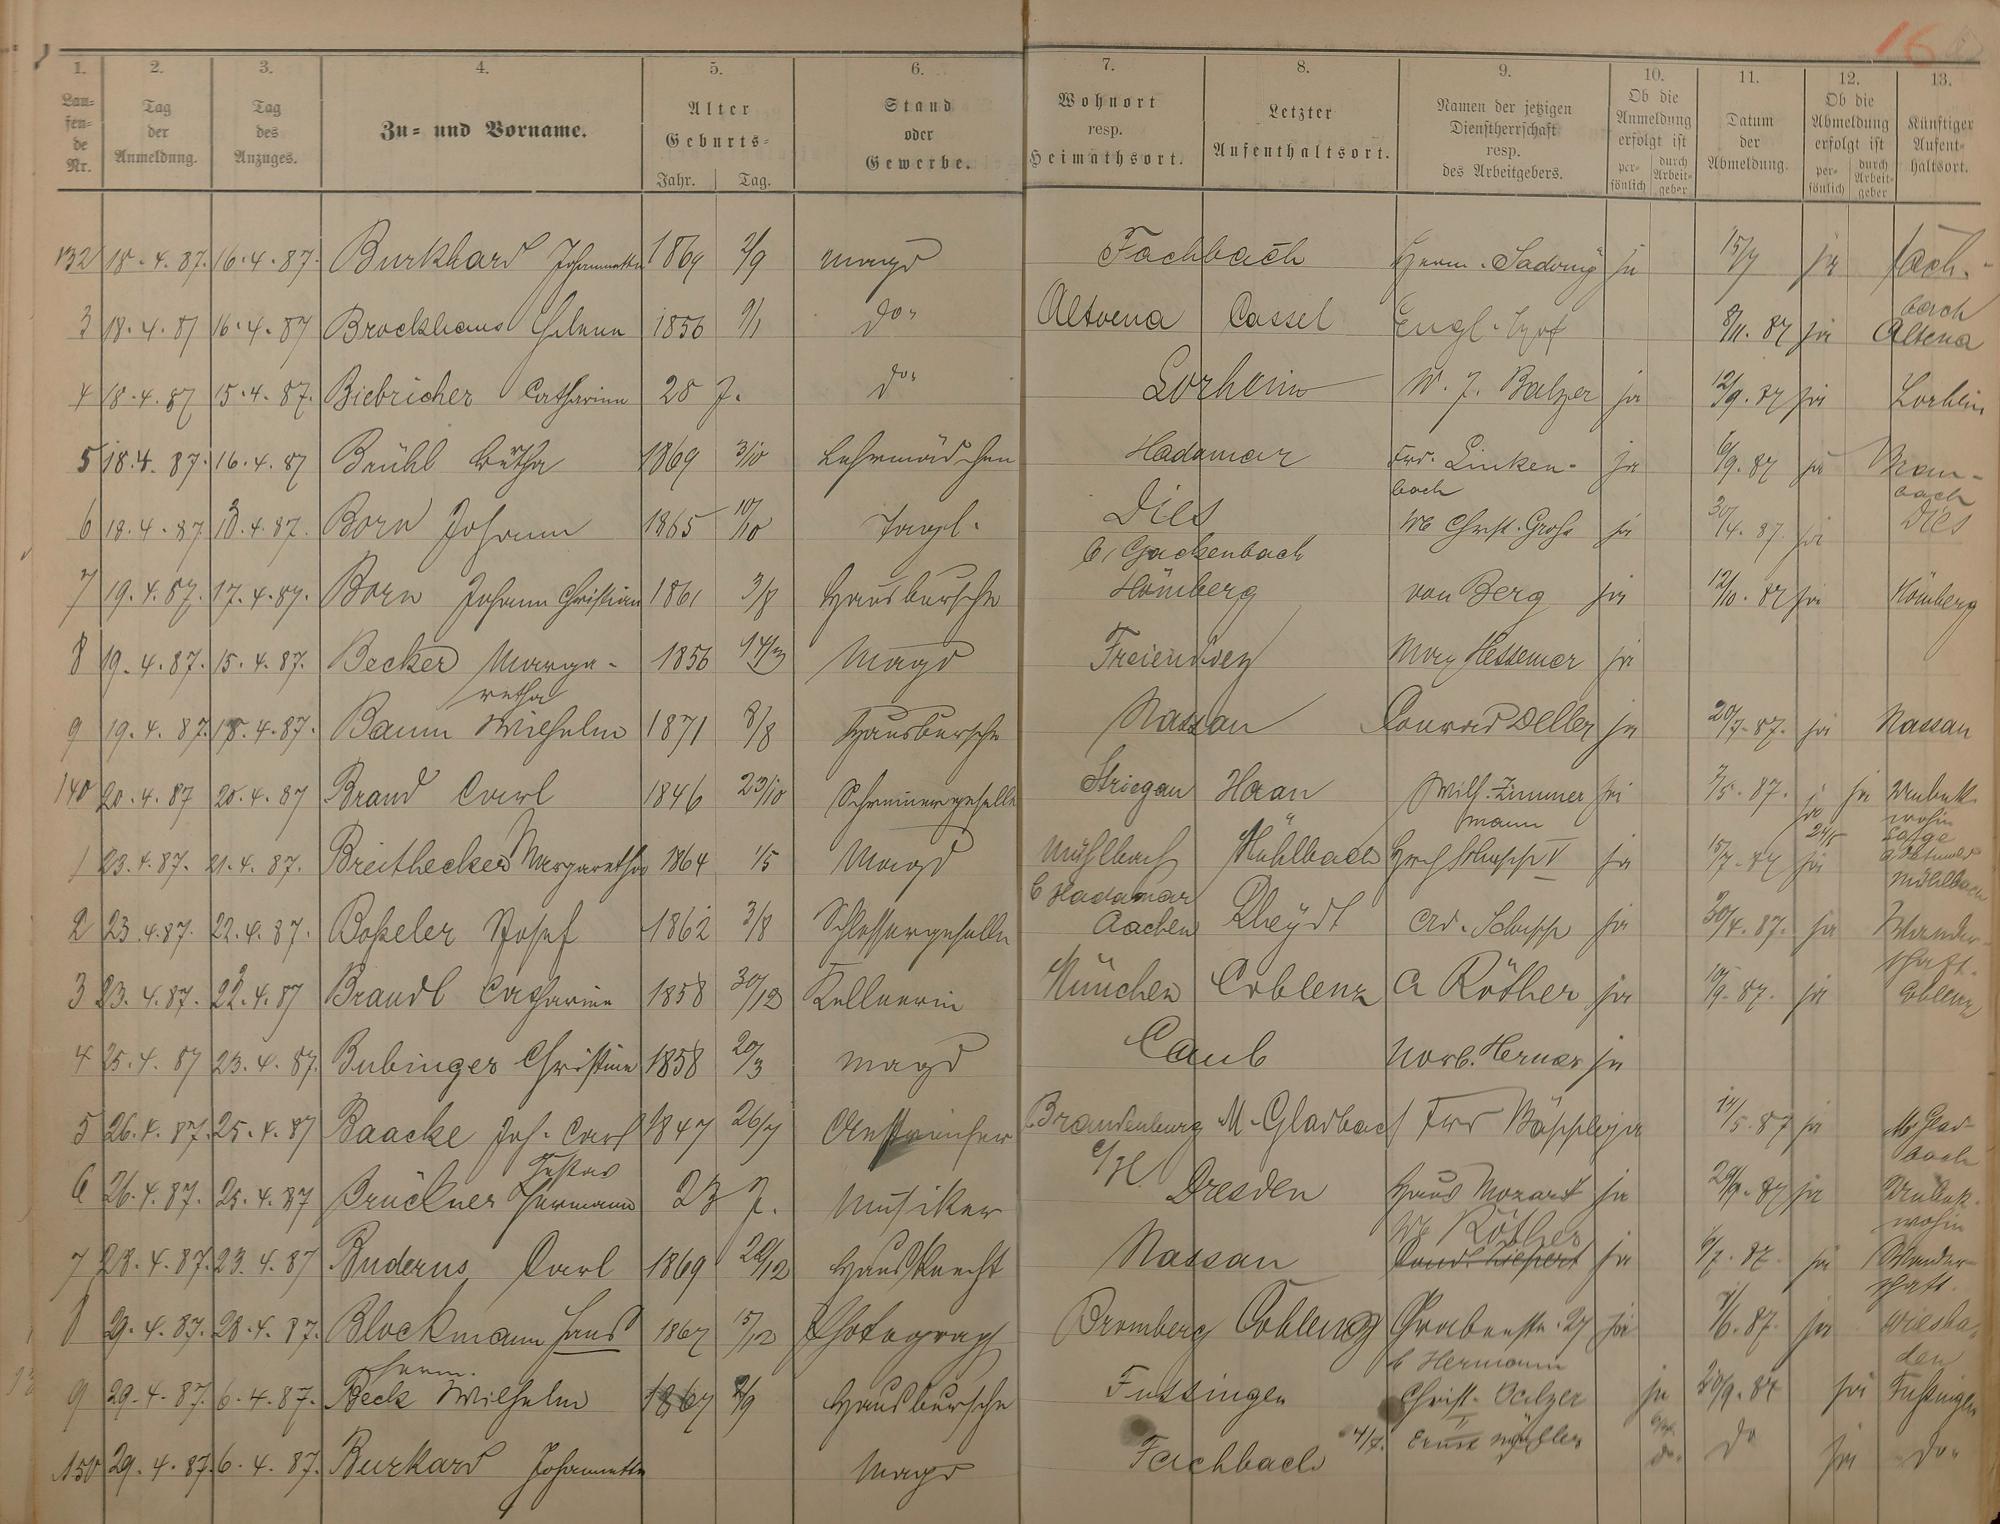 16
1. 2. 3. 4. 5. 6. 7. 8. 9. 10. 11. 12. 13.
Lau-fen-de Nr. Tag der Anmeldung. Tag des Anzuges. Zu- und Vorname. Alter Geburts- Jahr. Tag. Stand oder Gewerbe. Wohnort resp. Heimathsort. Letzter Aufenthaltsort. Namen der jetzigen Dienstherrschaft resp. des Arbeitgebers. Ob die Anmeldung erfolgt ist per-sönlich durch Arbeit-geber Datum der Abmeldung. Ob die Abmeldung erfolgt ist per-sönlich durch Arbeit-geber Künftiger Aufent-haltsort.
132 18.4.87. 16.4.87. Burkhard Johannette 1869 2/9 Magd Fachbach Herm. ja 15/7 ja Fach-
bach
3 18.4.87 16.4.87 Brockhaus Helene 1856 9/1 do" Altvena Cassel Engl. Hof 8/11.87 ja Altena
4 18.4.87 15.4.87. Biebricher Catharine 28 J. do" Lorheim W. J. Balzer ja 12/9.87 ja Lorheim
5 18.4.87. 16.4.87 Brühl Bertha 1869 3/10 Lehrmädchen Hadamar Frd. Linken- ja 6/9.87 ja
bach bach
6 18.4.87 Born Johann 1865 10/10 Tagl. Dies We Christ. Groß ja 30/4.87. ja Dies
b/ Gackenbach
7 19.4.87. 17.4.87. Born Johann Christian 1861 3/8 Hausbursche Hömberg von Berg ja 12/10.87 ja Hömberg
8 19.4.87. 15.4.87. Becker Marga- 1856 14/3 Magd Freiendiez Max Hessemer ja
retha
9 19.4.87. 18.4.87. Baum Wilhelm 1871 8/8 Hausbursche Nassau Conrad Deller ja 20/7.87. ja Nassau
140 20.4.87 20.4.87 Brand Carl 1846 23/10 Schreinergeselle Striegau Haan Wilh. Zimmer ja 7/5.87. ja Unbek.
mann wohin
1 23.4.87. 21.4.87. Breithecker Margaretha 1864 1/5 Magd Mühlbach Mühlbach V ja 15/7.87 ja Mühlbach
b Hadamar
2 23.4.87. 22.4.87. Boßeler Josef 1862 3/8 Schlossergeselle Aachen Rheydt Ad. Schupp ja 30/4.87. ja Wander-
schaft.
3 23.4.87. 22.4.87 Brandl Catharine 1858 30/12 Kellnerin München Coblenz A Röther ja 10/9.87. ja Coblenz
4 25.4.87 23.4.87. Bubinger Christine 1858 20/3 Magd Caub Norb. Herner ja
5 26.4.87. 25.4.87 Baacke Joh. Carl 1847 26/7 Anstreicher Brandenburg M. Gladbach Frd ja 14/5.87 ja M Glad-
Gustav a/H. bach
6 26.4.87. 25.4.87 Brückner Hermann 23 J. Musiker Dresden Haus Mozart ja 29/9.87 ja Unbek.
We Röther wohin
7 28.4.87. 23.4.87 Buderus Carl 1869 20/12 Hausknecht Nassau ja 6/7.87. ja Wander-
schaft.
8 29.4.87. 28.4.87. Blockmann Hans 1867 15/12 Photograph Bromberg Coblenz Grabenstr. 27 ja 7/6.87. ja Wiesba-
Herm. b Hermann den
9 29.4.87. 6.4.87. Beck Wilhelm 1867 2/9 Hausbursche Fussingen Christ. Balzer ja 20/9.87 ja Fussingen
150 29.4.87. 6.4.87. Burkard Johannette Magd Fachbach 4/7. Ernst do. do ja do"